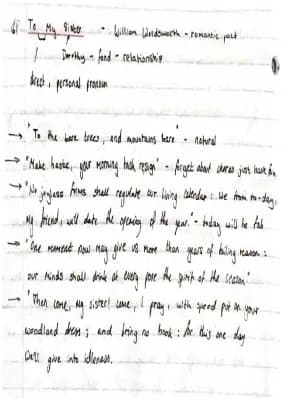 6) To My Sister - William Wordsworth - romantic poet
/ Dorothy - fond - relationship
direct, personal pronoun
→ "To the bare trees, and mountains bare" - natural
→ "Make haste, your morning task resign" - forget about chores just have fun
→ "No joyless forms shall regulate our living calendar: We from to-day,
my friend, will date the opening of the year." - today will be fab
→ "One moment now may give us more than years of toiling reason:
our minds shall drink at every pore the spirit of the season"
→ "Then come, my sister! come, I pray, with speed put on your
woodland dress; and bring no book: for this one day
We'll give into idleness.